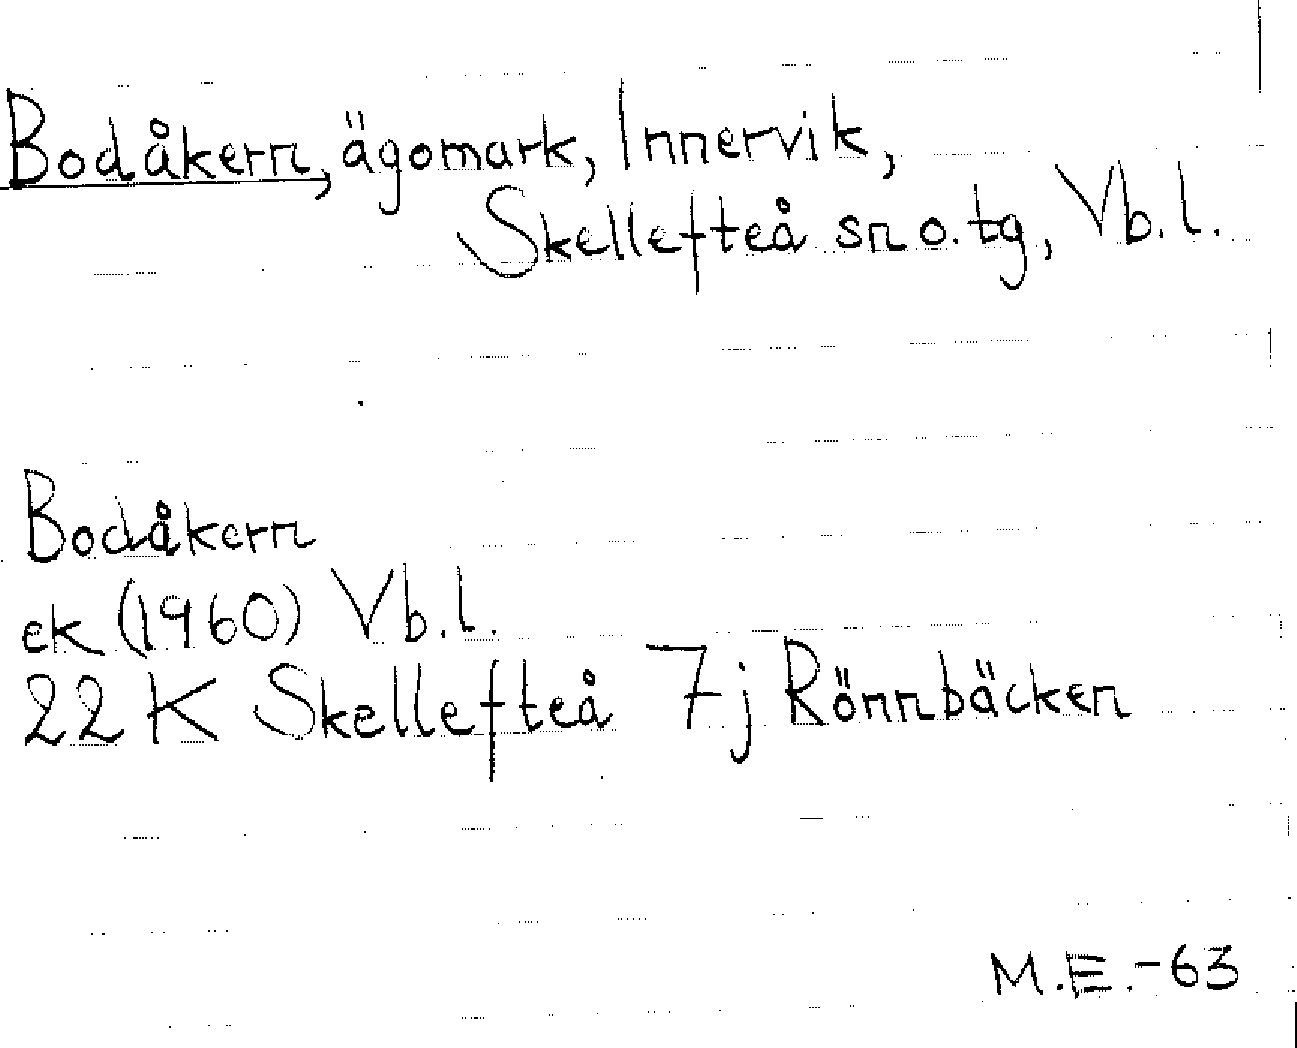 Bodåkern, ägomark, Innervik,
Skellefteå sn o. tg, Vb. l.
Bodåkern
ek (1960) Vb. l.
22 K Skellefteå 7j Rönnbäcken
M.E. -63